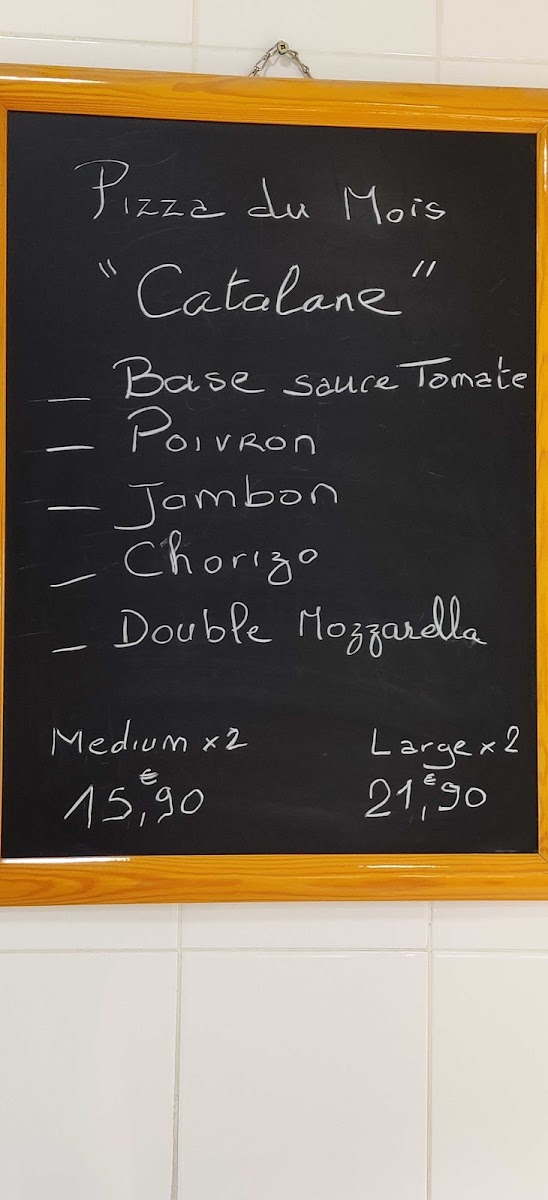 Pizza du Mois
"Catalane"
_ Base sauce Tomate
_ Poivron
_ Jambon
_ Chorizo
_ Double Mozzarella
Medium x2 Large x2
15,€90 21,€90